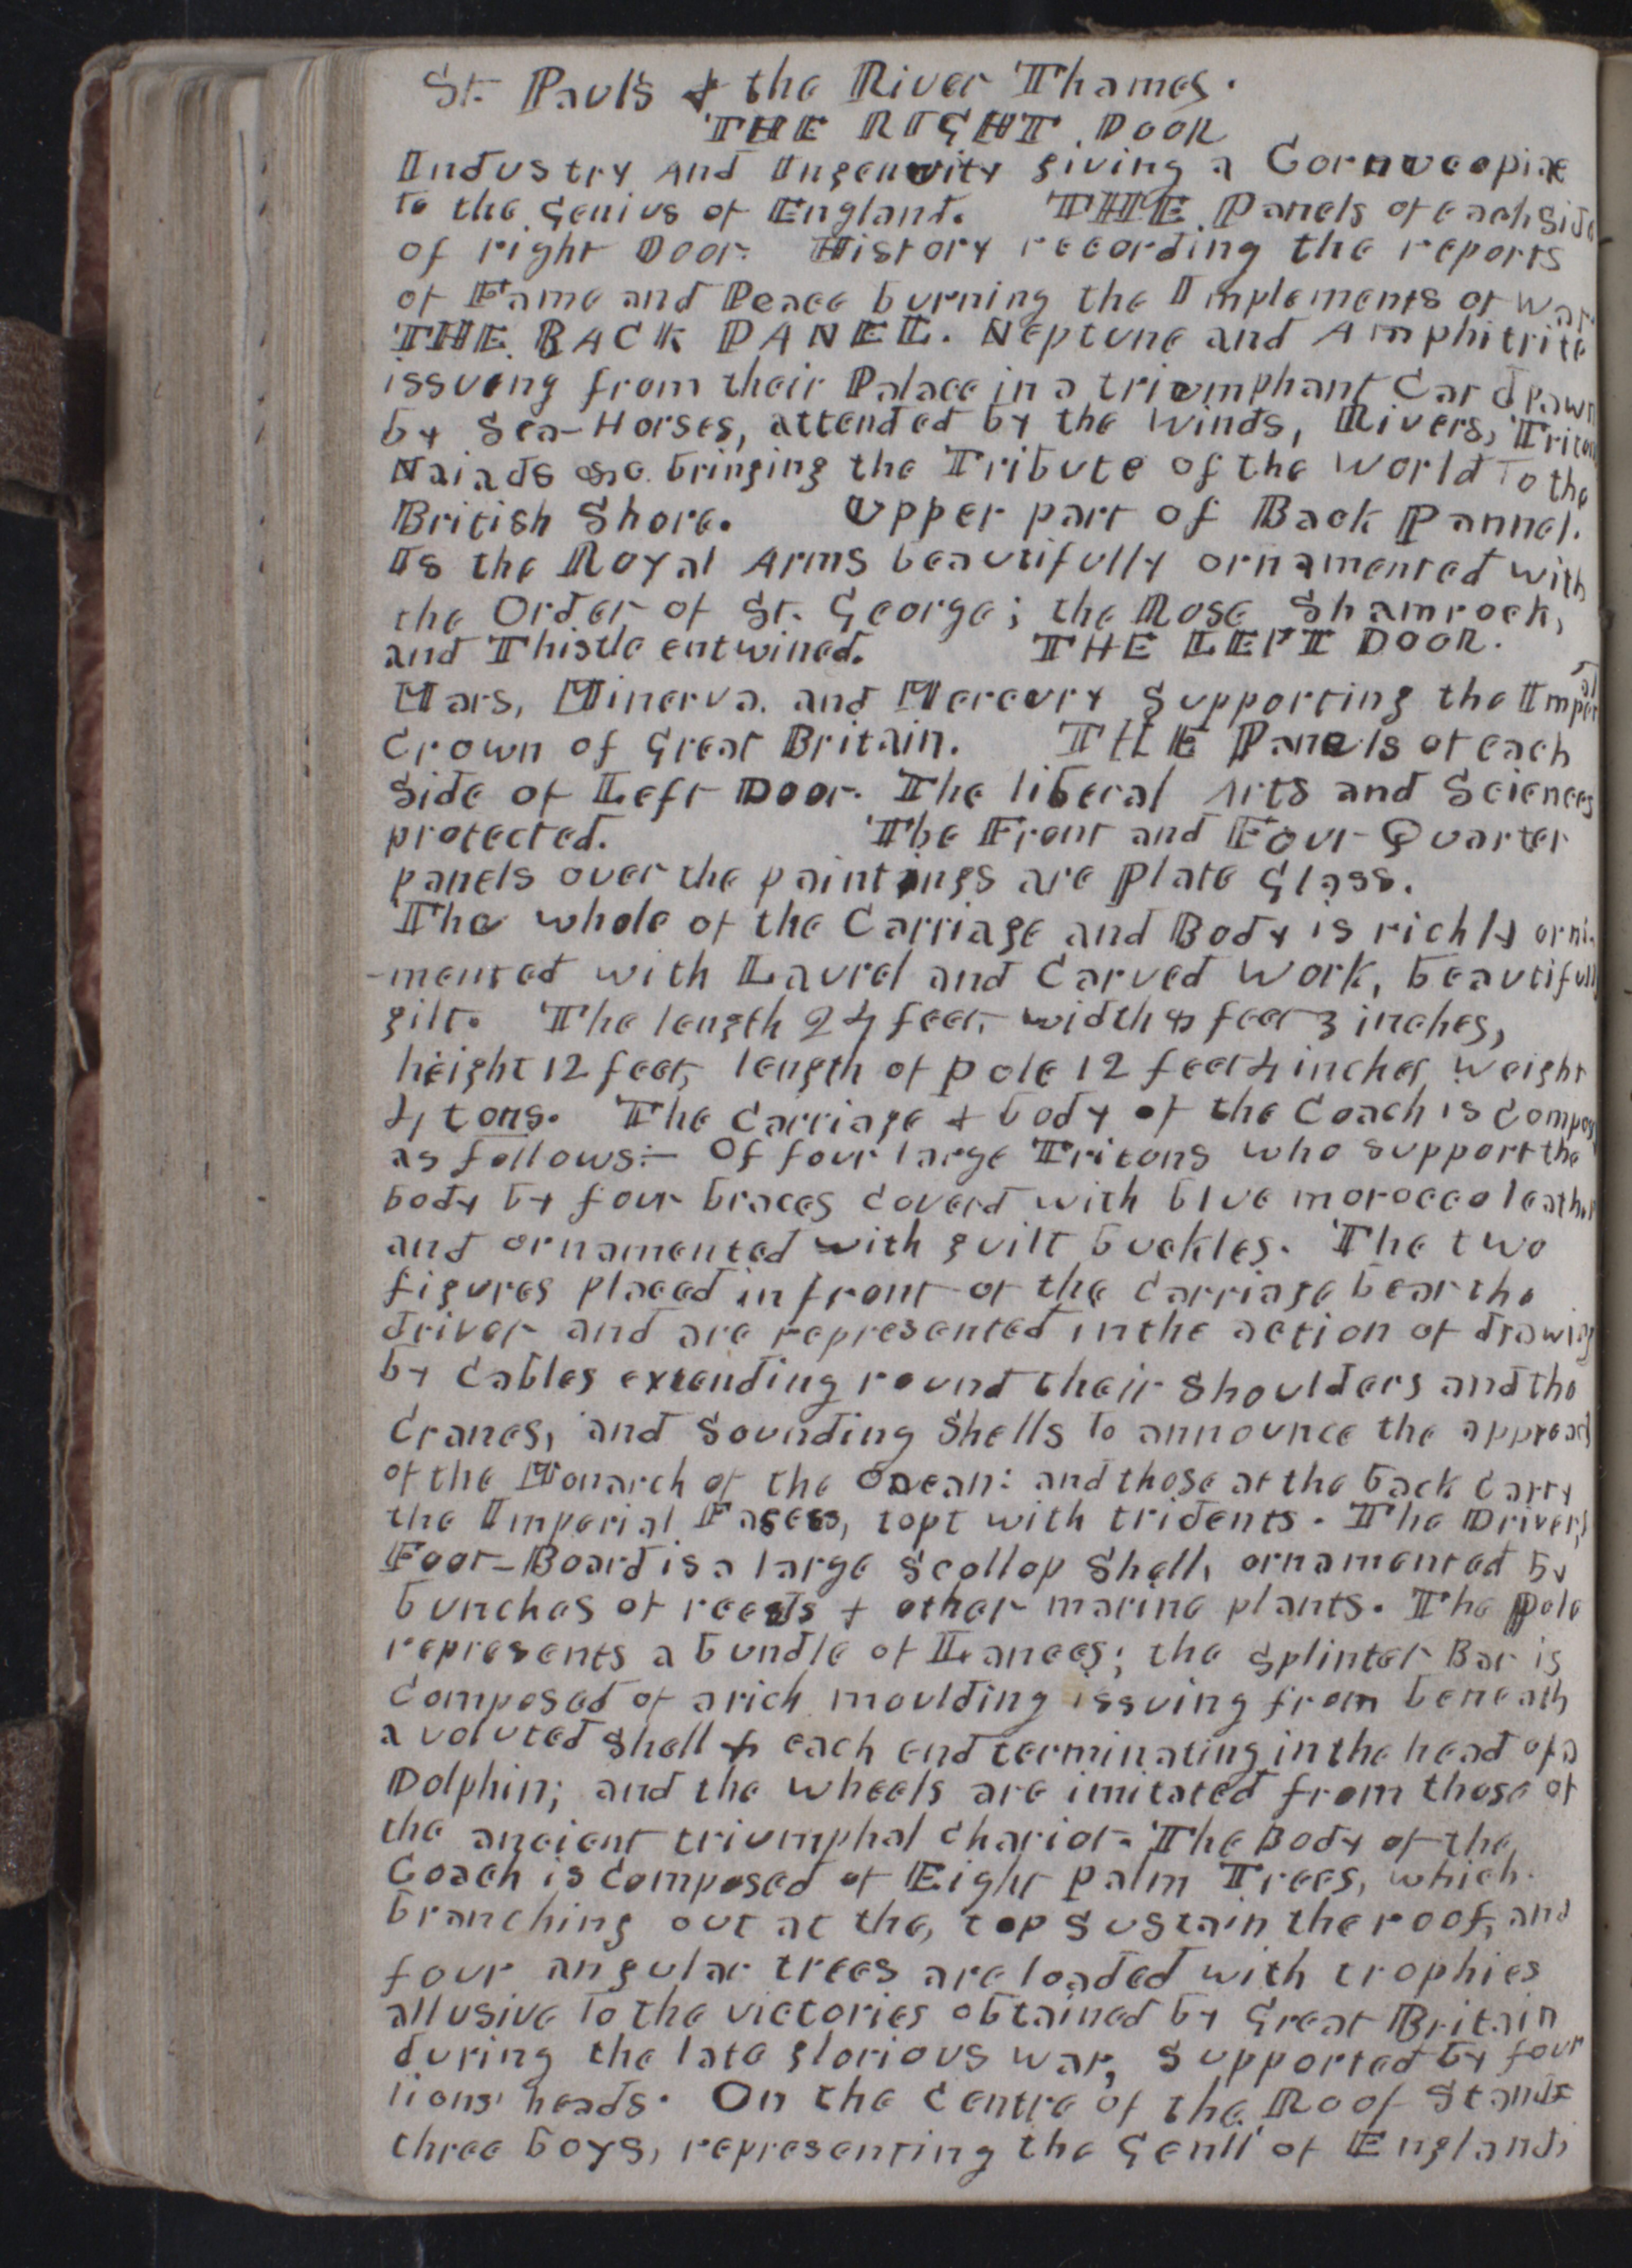 St. Paul's & the River Thames.
THE RIGHT DOOR
Industry and Ingenuity giving a Cornucopiæ
to the Genius of England. THE Panels of each Side
of right Door. History recording the reports
of Fame and Peace burning the Implements of War.
THE BACK PANEL. Neptune and Amphitrite
issuing from their Palace in a triumphant Car drawn
by Sea-Horses, attended by the Winds, Rivers, Tritons
Naiads &c. bringing the Tribute of the World To the
British Shore. Upper part of Back Pannel.
Is the Royal Arms beautifully ornamented with
the Order of St. George; the Rose Shamrock,
and Thistle entwined. THE LEFT DOOR.
Mars, Minerva. and Mercury Supporting the Imperial
Crown of Great Britain. THE Panels of each
Side of Left Door. The liberal Arts and Sciences
protected. The Front and Four Quarter
panels over the paintings are Plate Glass.
The whole of the Carriage and Body is richly orni-
-mented with Laurel and Carved Work, beautifully
gilt. The length 24 feet, width 8 feet 3 inches,
height 12 feet, length of pole 12 feet 4 inches weight
4 tons. The Carriage & body of the Coach is Compos
as follows:- Of four large Tritons who support the
body by four braces Coverd with blue morocco leather
and ornamented with guilt buckles. The two
figures placed in front of the Carriage bear the
driver and are represented in the action of drawing
by Cables extending round their Shoulders and the
Cranes, and Sounding Shells to announce the approach
of the Monarch of the Ocean: and those at the back Carry
the Imperial Fasces, topt with tridents. The Driver's
Foot-Board is a large Scollop Shell, ornamented by
bunches of reeds & other marine plants. The pole
represents a bundle of Lances; the Splinter Bar is
Composed of a rich moulding issuing from beneath
a voluted Shell & each end terminating in the head of a
Dolphin; and the wheels are imitated from those of
the ancient triumphal Chariot. The Body of the
Coach is Composed of Eight Palm Trees, which
branching out at the, top Sustain the roof, and
four angular trees are loaded with trophies
allusive To the victories obtained by Great Britain
during the late glorious war, Supported by four
lions' heads. On the Centre of the Roof Stands
three boys, representing the Genii of England,